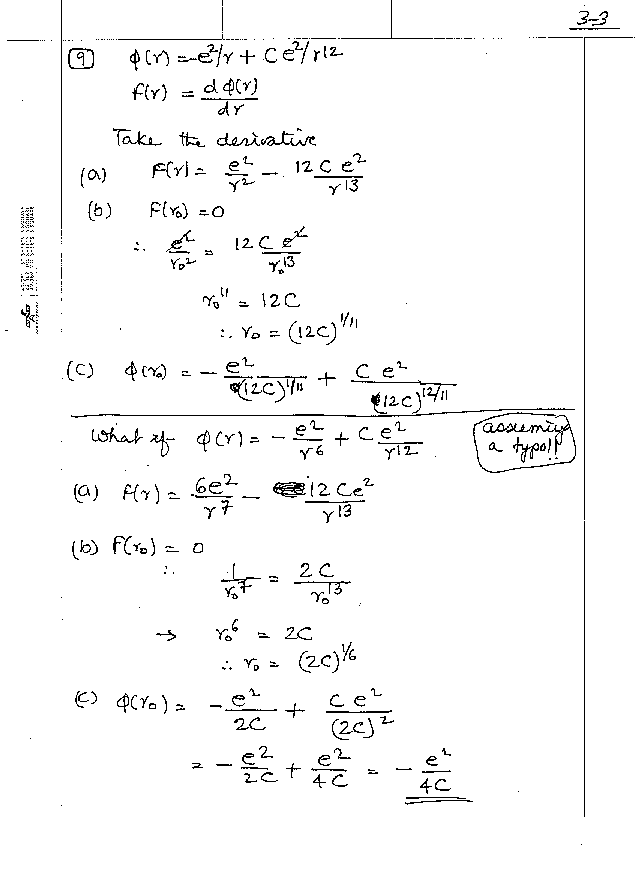 3-3
9 ϕ(r) = -e²/r + Ce²/r12
F(r) = dϕ(r)/dr
Take the derivative
(a) F(r) = e²/r² - 12Ce²/r¹³
(b) F(r₀) = 0
∴ e²/r₀² = 12Ce²/r₀¹³
r₀¹¹ = 12C
∴ r₀ = (12C)^1/11
(C) ϕ(r₀) = - e²/(12C)^1/11 + Ce²/(12C)^12/11
What if ϕ(r) = - e²/r⁶ + Ce²/r¹² assuming
a typo!!
(a) F(r) = 6e²/r⁷ - 12Ce²/r¹³
(b) F(r₀) = 0
∴ 1/r₀⁷ = 2C/r₀¹³
→ r₀⁶ = 2C
∴ r₀ = (2C)^1/6
(C) ϕ(r₀) = -e²/2C + Ce²/(2C)²
= - e²/2C + e²/4C = - e²/4C